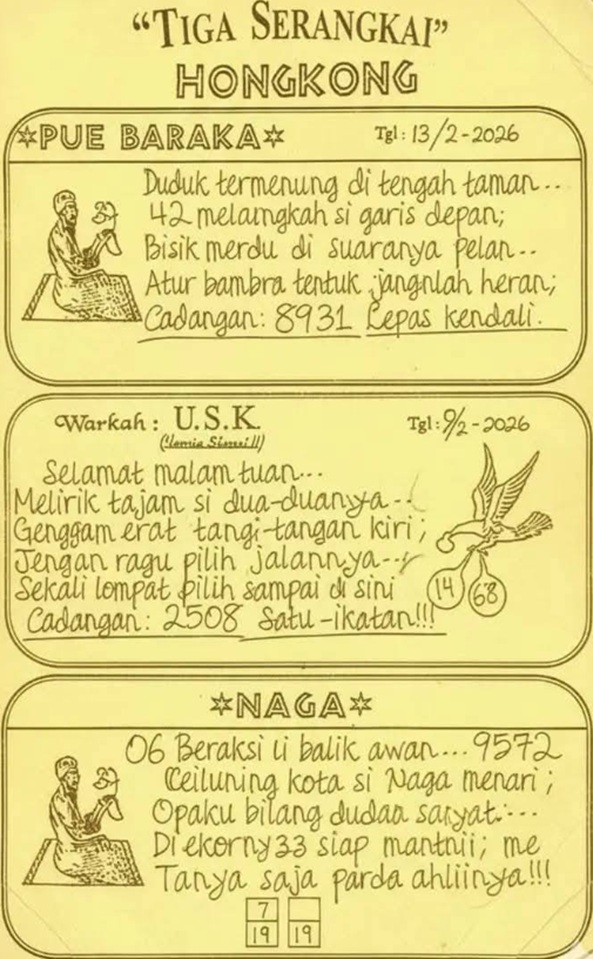 “TIGA SERANGKAI”
HONGKONG
✲PUE BARAKA✲ Tgl: 13/2-2026
Duduk termenung di tengah taman..
42 melaingkah si garis depan;
Bisik merdu di suaranya pelan..
Atur bambra tentuk jangnlah heran;
Cadangan: 8931 Lepas kendali.
Warkah: U.S.K. Tgl: 9/2-2026
Selamat malam tuan...
Melirik tajam si dua-duanya..
Genggam erat tangi-tangan kiri;
Jengan ragu pilih jalannya--
Sekali lompat pilih sampai di sini
14 68
Cadangan: 2508 Satu-ikatan!!!
✲NAGA✲
06 Beraksi li balik awan... 9572
Ceiluning kota si Naga menari;
Opaku bilang dudaa saryat....
Di ekorny33 siap mantnii; me
Tanya saja parda ahliinya!!!
7
19 19